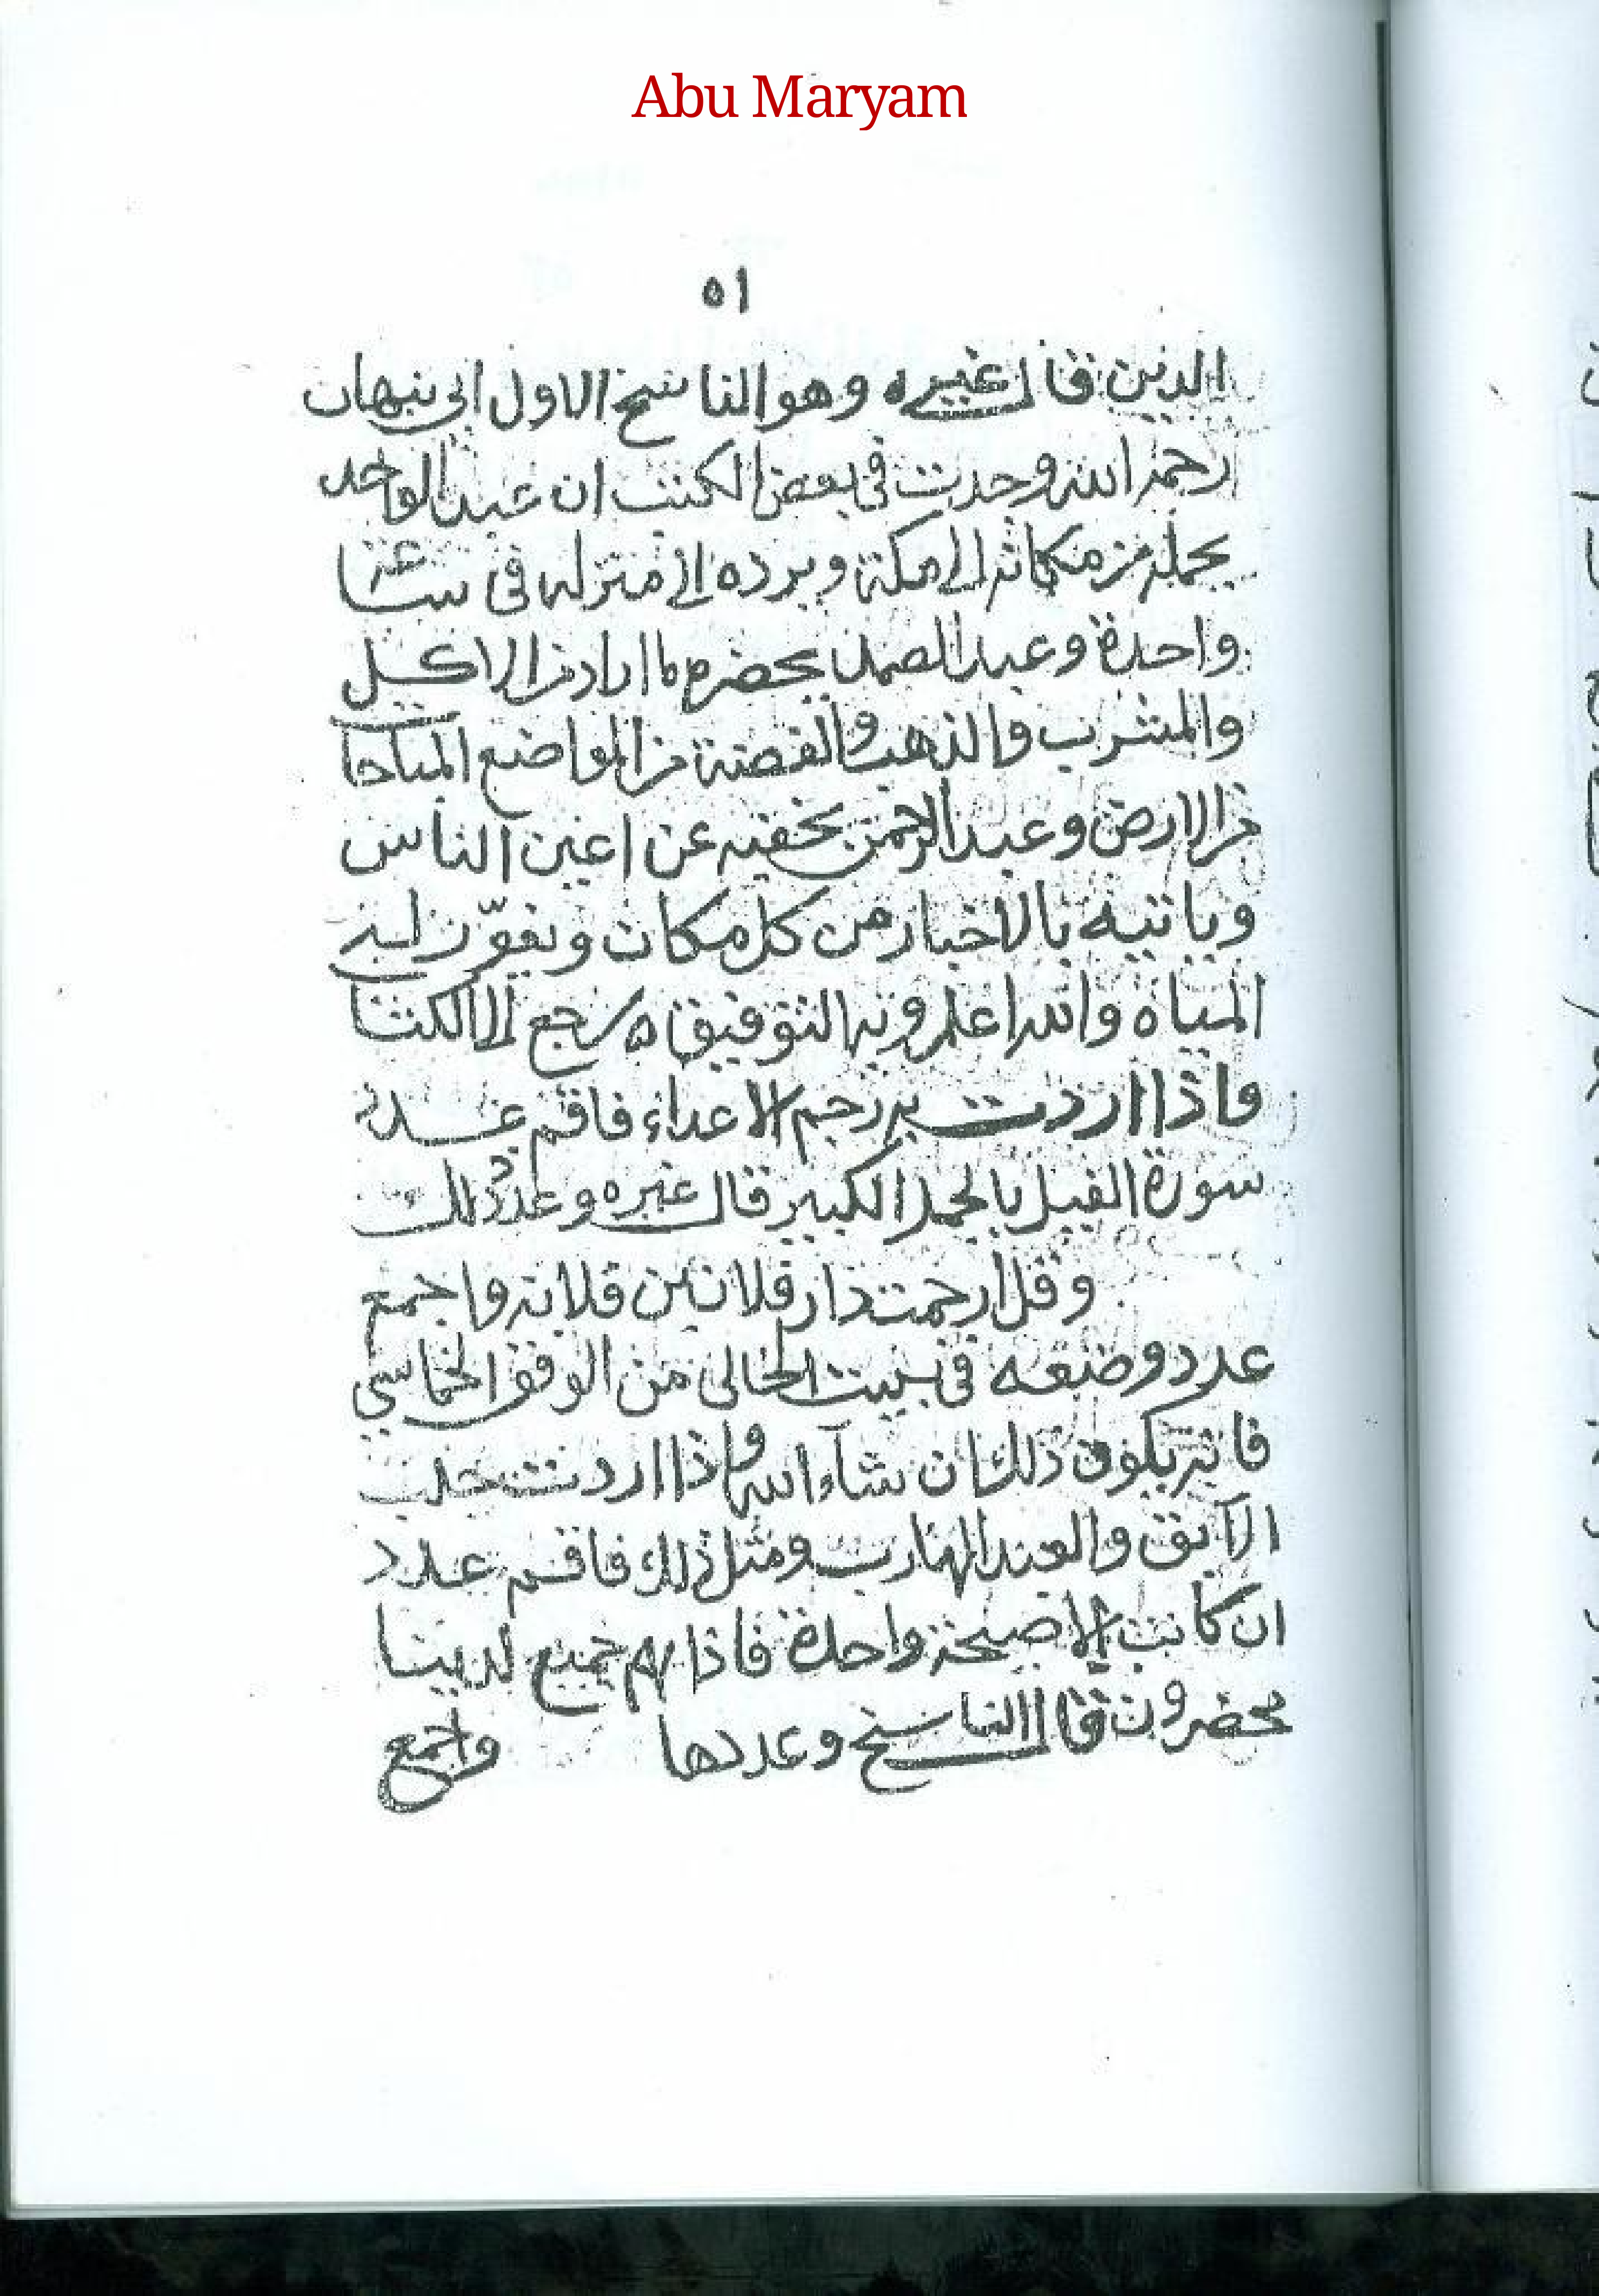 Abu Maryam
٥١
الدين قال غيره وهو الناسخ الاول ابى نبهان
رحمه الله وجدت فى بعض الكتب ان عبد الواحد
يحمله من مكانه الى مكة ويرده الى منزله فى
واحدة وعبد الصمد يحضره ما اراد من الاكل
والمشرب والذهب والفضة من المواضع المباحا
من الارض وعبد الرحمن يخفيه عن اعين الناس
وياتيه بالاخبار من كل مكان
المياه والله اعلم وبه التوفيق ه رجع الى الكتا
واذا اردت به رجم الاعداء فاقم عدد
سورة الفيل بالجمل الكبير قال غيره وعدد ذلك
وقل ارجمت دار فلان بن فلانه واجمع
عدد وضعه فى بيت الخالى من الوفق الخماسي
فانه يكون ذلك ان شآء الله واذا اردت جلب
الآبق والعبد الهارب ومثل ذلك فاقم عدد
ان كانت الا صيحة واحدة فاذا هم جميع لدينا
محضرون قال الناسخ وعددها واجمع